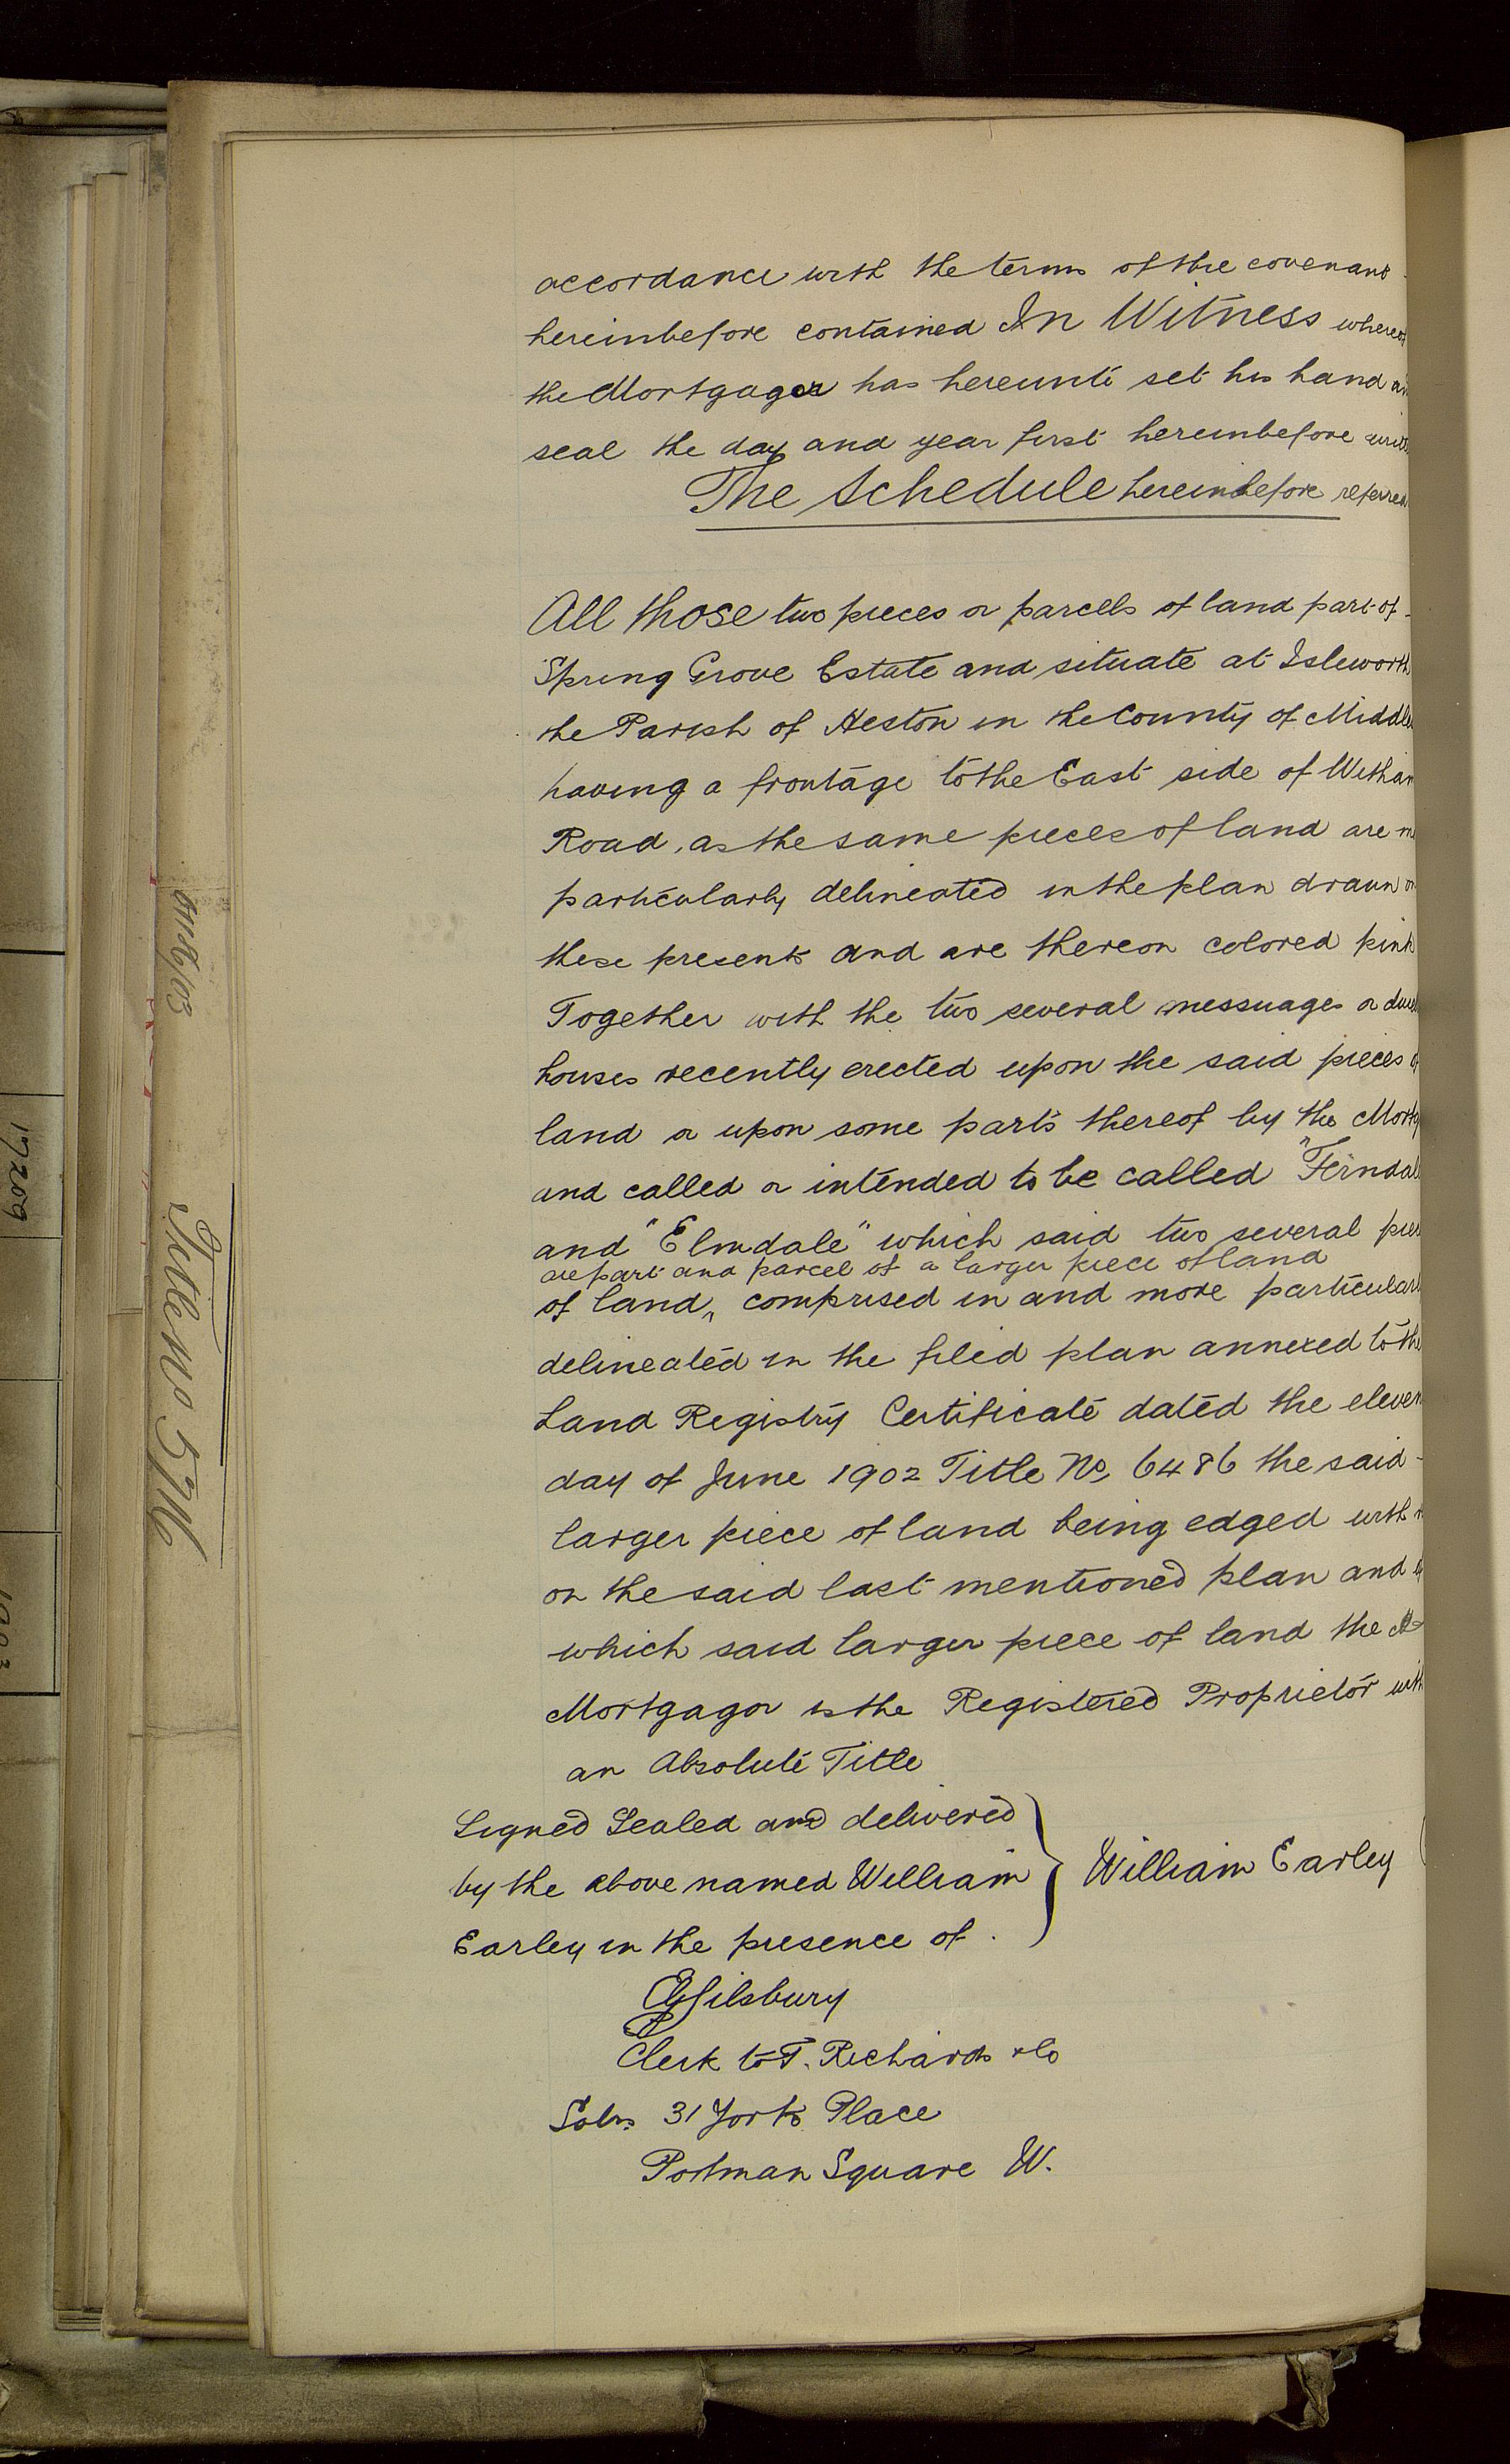 accordance with the terms of the covenant
hereinbefore contained In Witness whereof
the Mortgagor has hereunto set his hand an
seal the day and year first hereinbefore writt
The Schedule hereinbefore referred
All those two pieces or parcells of land part of
Spring Grove Estate and situate at Isleworth
the Parish of Heston in the County of Middle
having a frontage to the East side of Witham
Road, as the same pieces of land are m
particularly delineated in the plan drawn on
these presents and are thereon colored pink
Together with the two several messuages or dwel
houses recently erected upon the said pieces of
land or upon some parts thereof by the Mortg
and called or intended to be called "Ferndal
and "Elmdale" which said two several piec
are part and parcel of a larger piece of land
of land, comprised in and more particularl
delineated in the filed plan annexed to the
Land Registry Certificate dated the eleven
day of June 1902 Title No, 6486 the said
larger piece of land being edged with r
on the said last mentioned plan and of
which said larger piece of land the
Mortgagor is the Registered Proprietor with
an Absolute Title
Signed Sealed and delivered
by the above named William
Earley in the presence of
William Earley
Clerk to T. Richards & Co
Solrs 31 York Place
Portman Square W.
17209